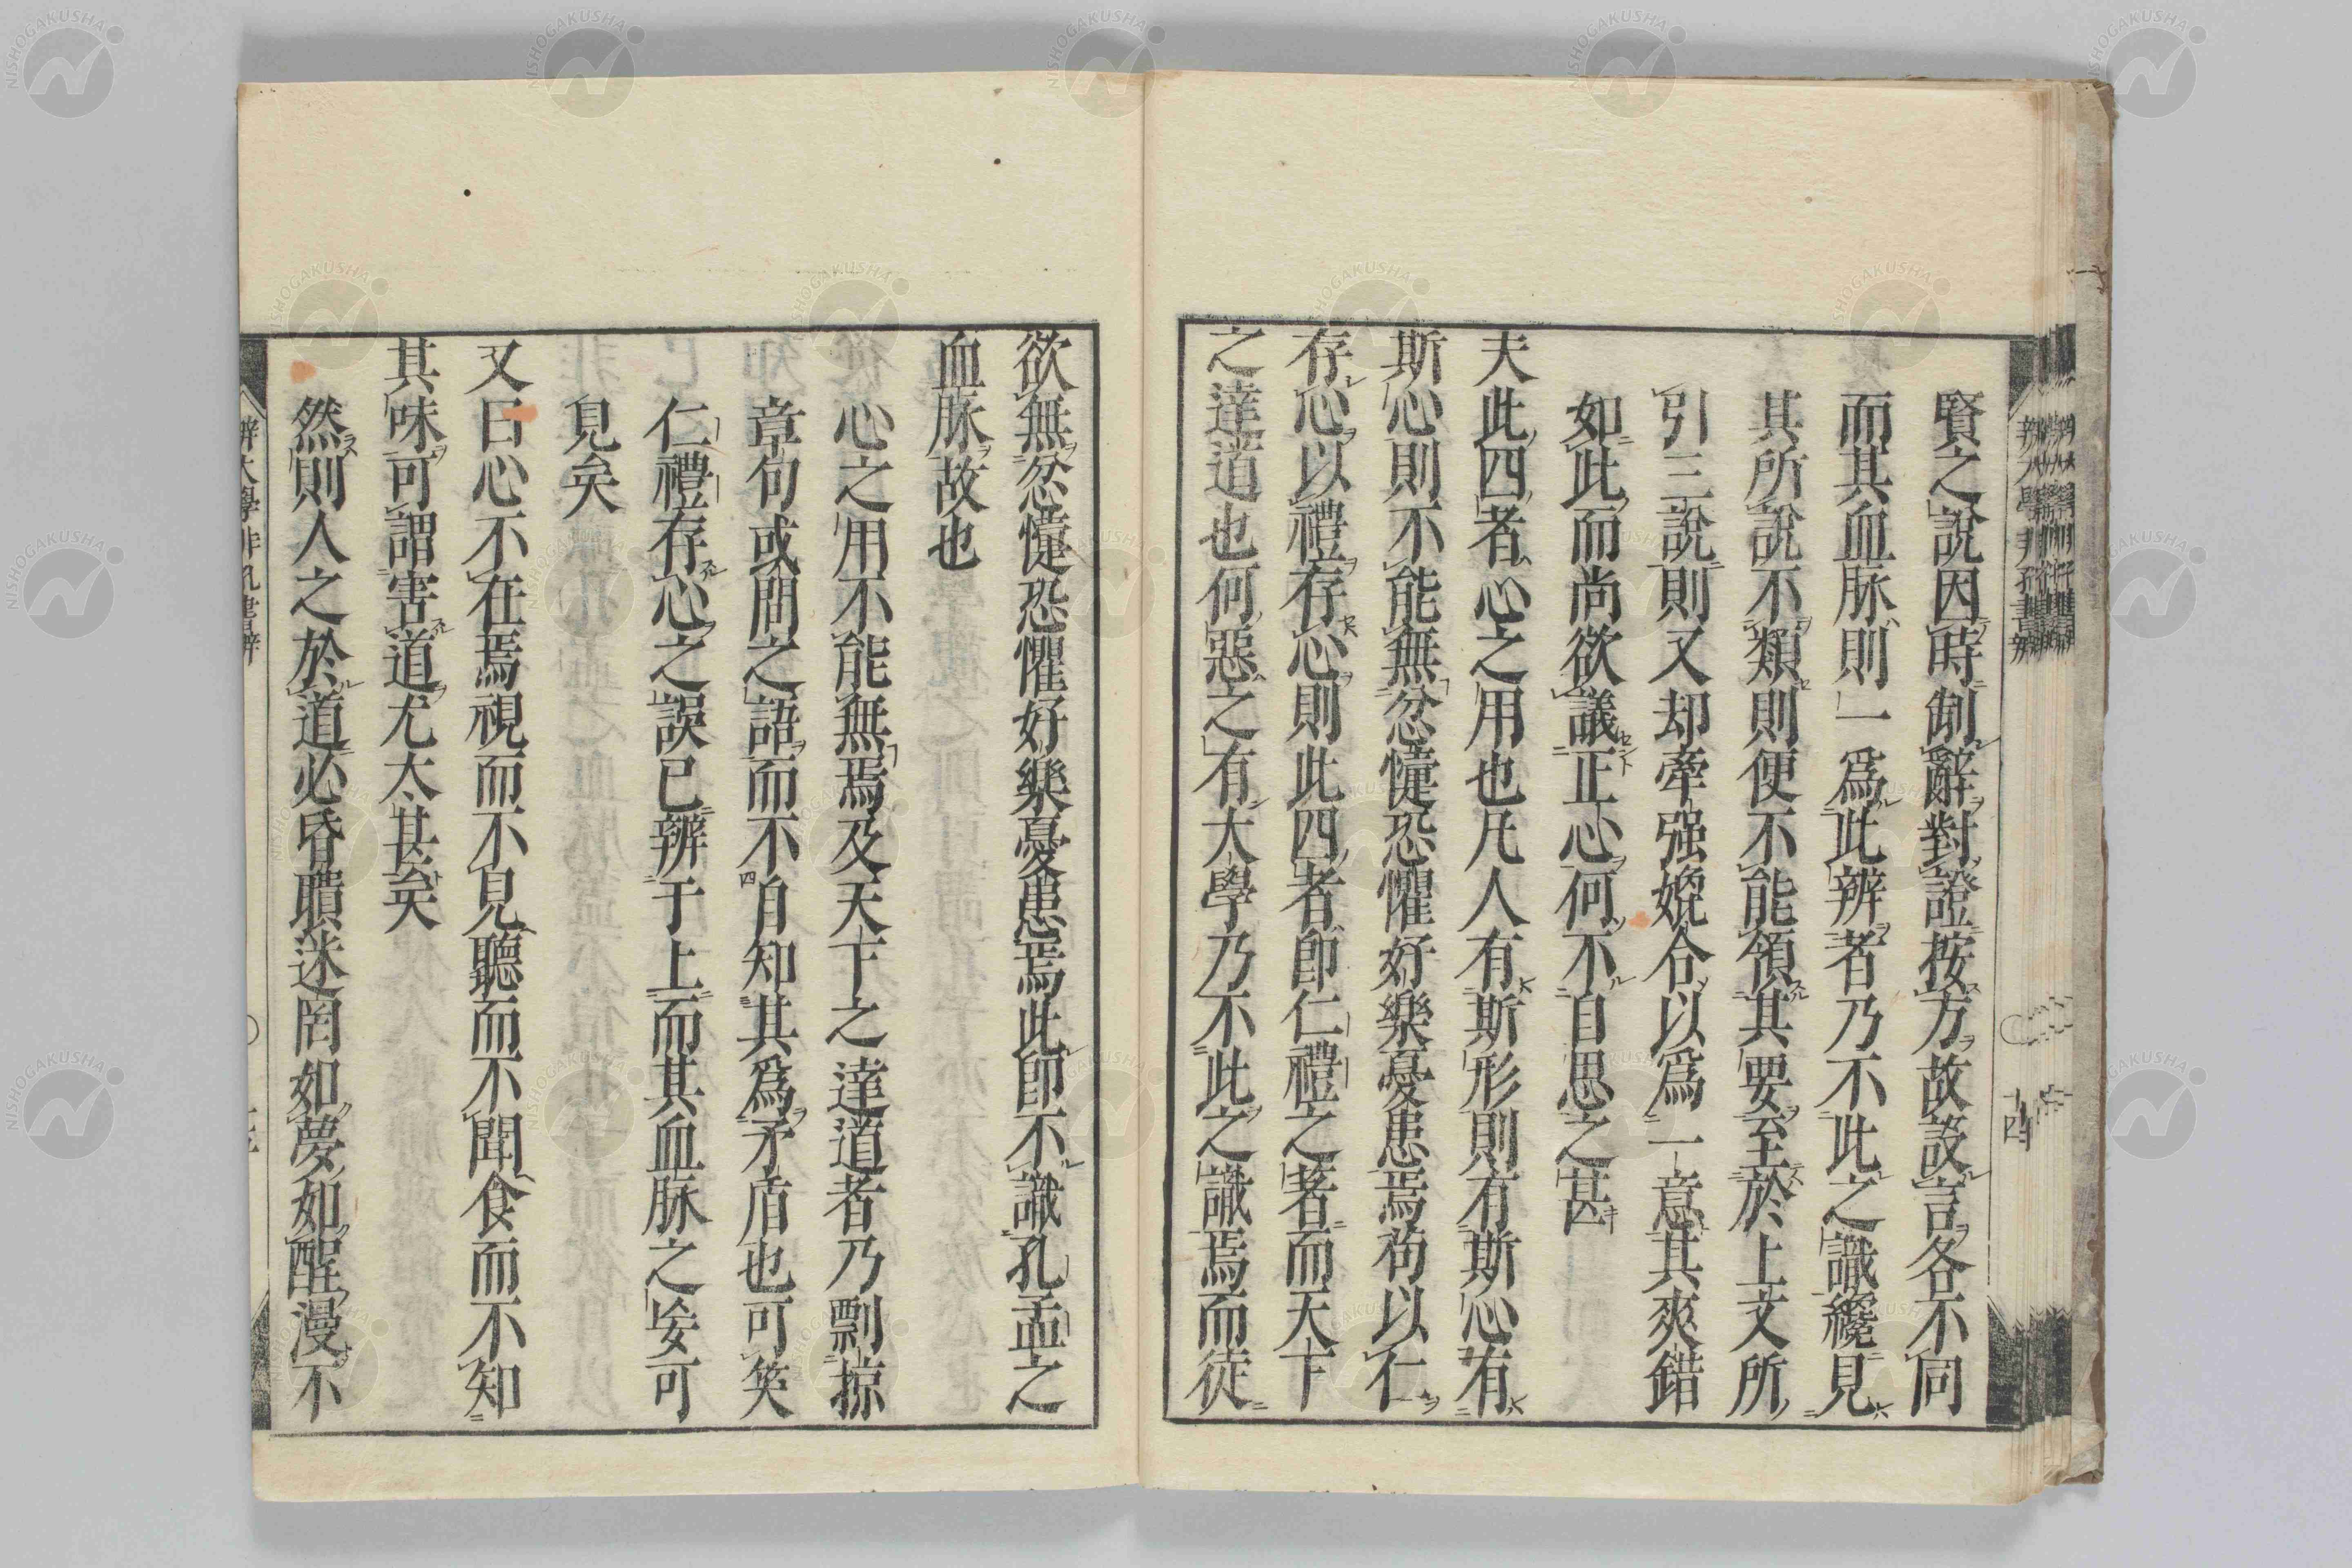 賢之說因時制辭對證按方故設言各不同
而其血脉則一爲此辨者乃不此之識纔見
其所說不類則便不能領其要至於上文所
引三說則又却牽强媿合以爲一意其爽錯
如此而尚欲議正心何不自思之甚
夫此四者心之用也凡人有斯形則有斯心有
斯心則不能無忿懥恐懼好樂憂患焉苟以仁
存心以禮存心則此四者卽仁禮之著而天下
之達道也何惡之有大學乃不此之識焉而徒
欲無忿懥恐懼好樂憂患焉此卽不識孔孟之
血脉故也
心之用不能無焉及天下之達道者乃剽掠
章句或問之語而不自知其爲矛盾也可笑
仁禮存心之誤已辨于上而其血脉之妄可
見矣
又曰心不在焉視而不見聽而不聞食而不知
其味可謂害道尤太甚矣
然則人之於道必昏聵迷罔如夢如醒漫不